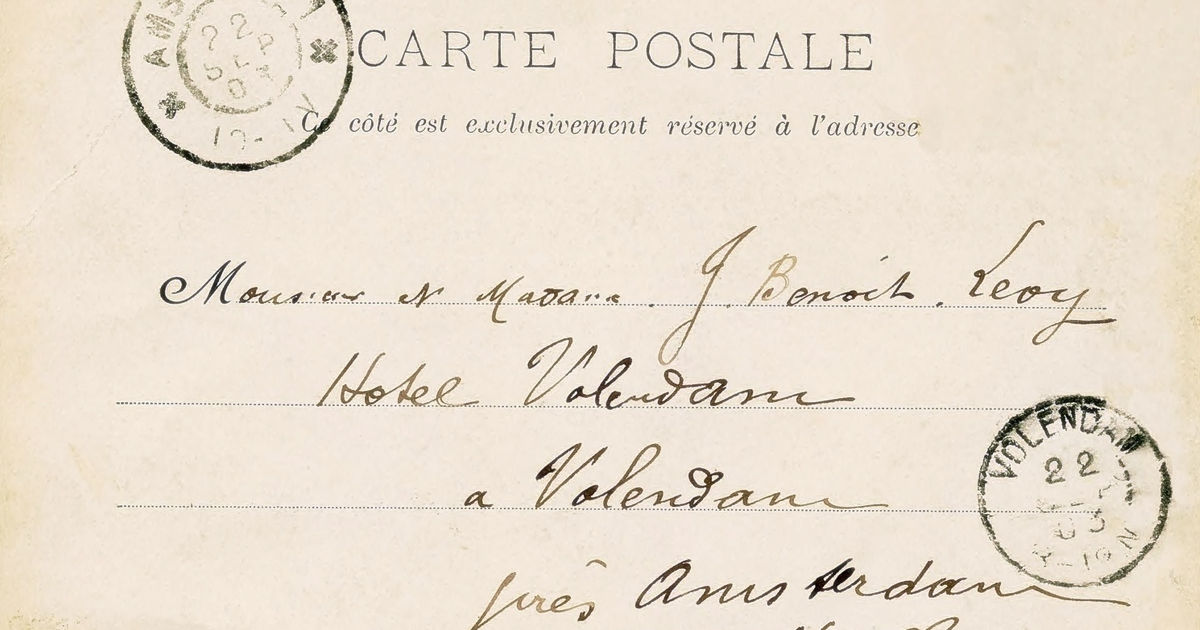 AMS
22 SEP 03
CARTE POSTALE
Ce côté est exclusivement réservé à l'adresse
Monsieur et Madame. J. Benoit. Levy
Hotel Volendam
VOLENDAM
22
03
a Volendam
près Amsterdam